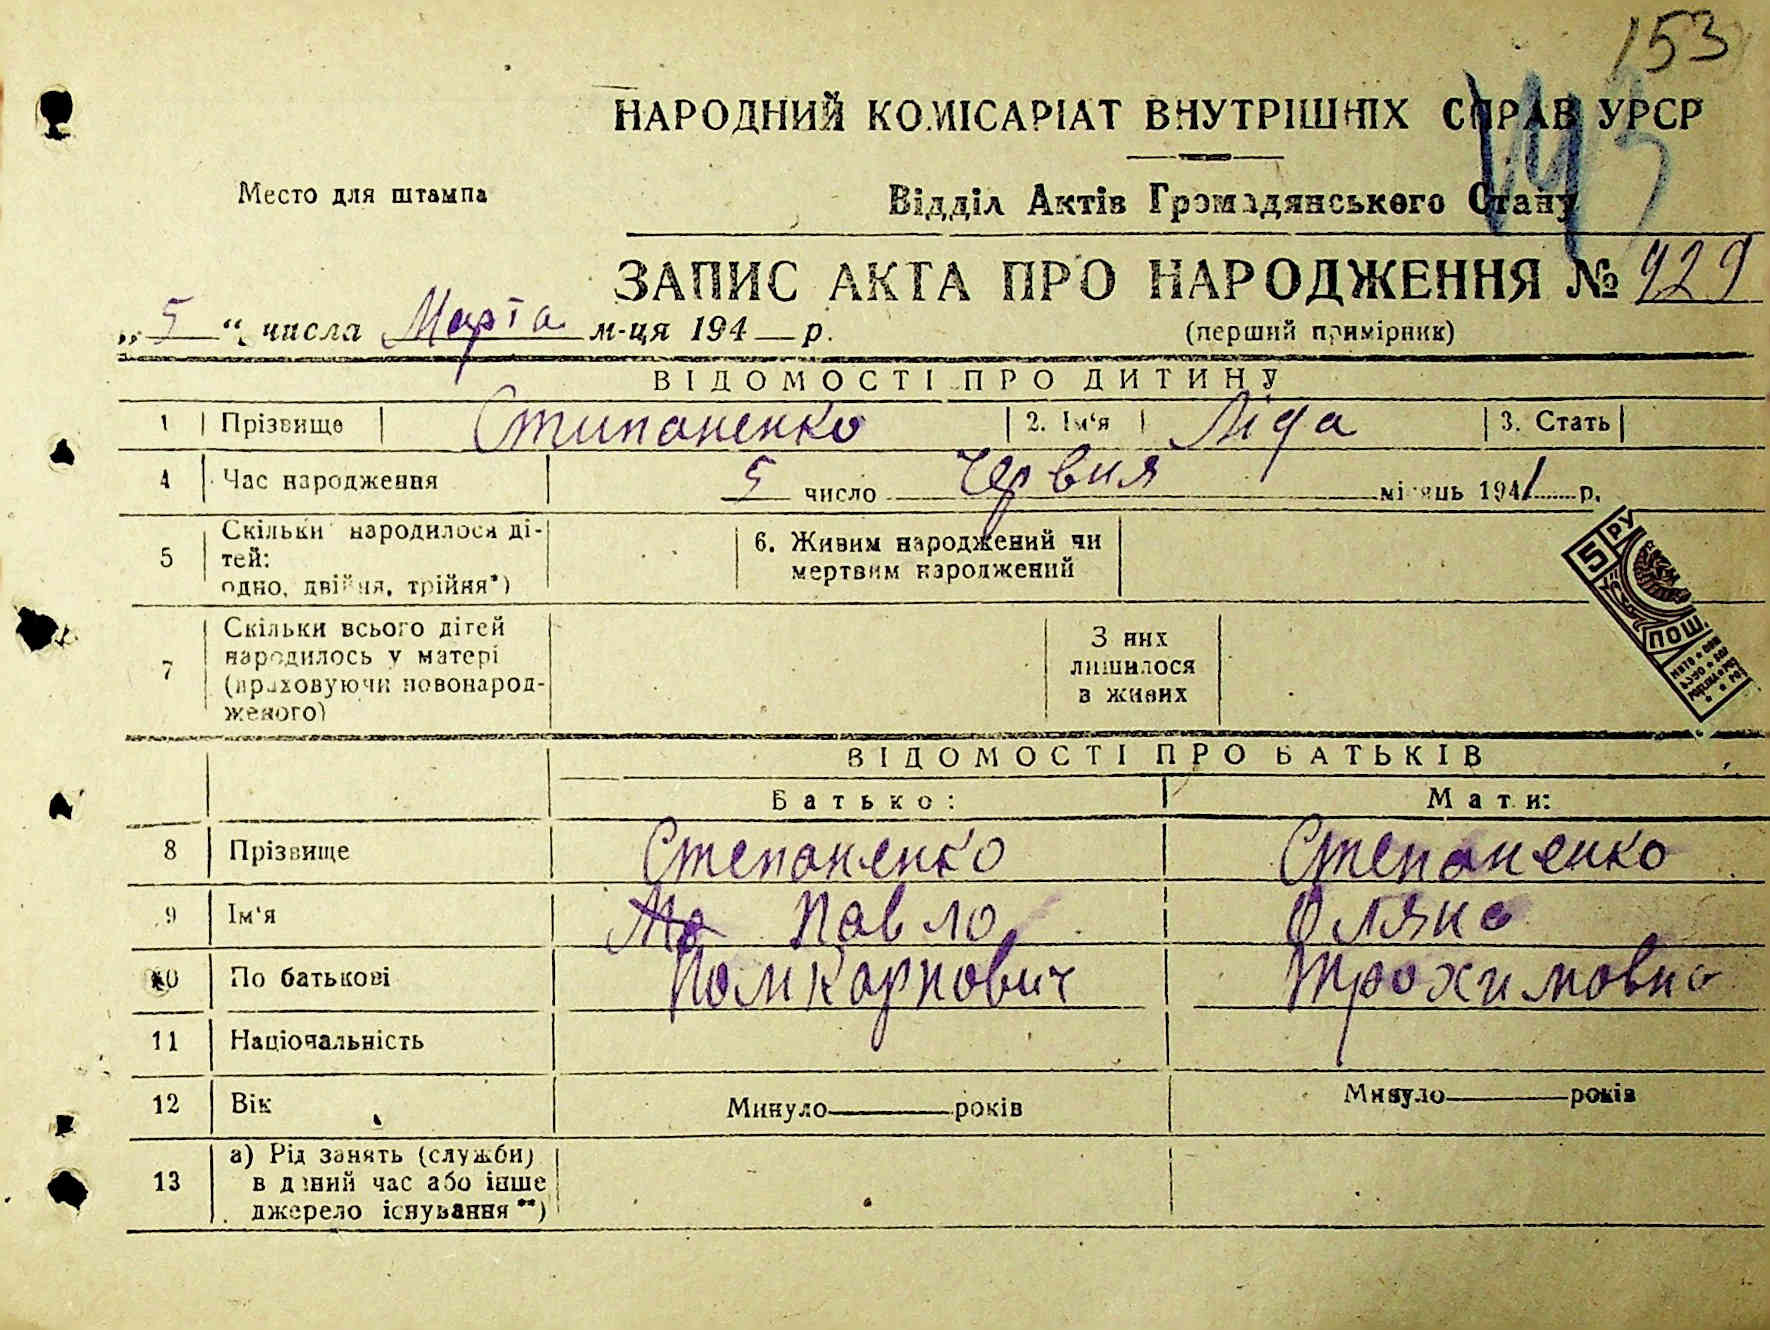 153
143
НАРОДНИЙ КОМІСАРІАТ ВНУТРІШНІХ СПРАВ УРСР
Место для штампа
Відділ Актів Громадянського Стану
ЗАПИС АКТА ПРО НАРОДЖЕННЯ № 429
„ 5 “ числа Марта м-ця 194 р.
(перший примірник)
ВІДОМОСТІ ПРО ДИТИНУ
1 Прізвище Стипаненко 2. Ім‘я Ліда 3. Стать
4 Час народження 5 число Червня місяць 1941 р.
5 Скільки народилося ді-
тей:
одно, двійня, трійня*)
6. Живим народжений чи
мертвим народжений
7 Скільки всього дітей
народилось у матері
(враховуючи новонарод-
женого)
З них
лишилося
в живих
5 РУ
ПОШ.
ВІДОМОСТІ ПРО БАТЬКІВ
Батько: Мати:
8 Прізвище Степаненко Степаненко
9 Ім‘я Ма Павло Оляна
10 По батькові Трохимовна
11 Національність
12 Вік Минуло років Минуло років
13 а) Рід занять (служби)
в даний час або інше
джерело існування**)